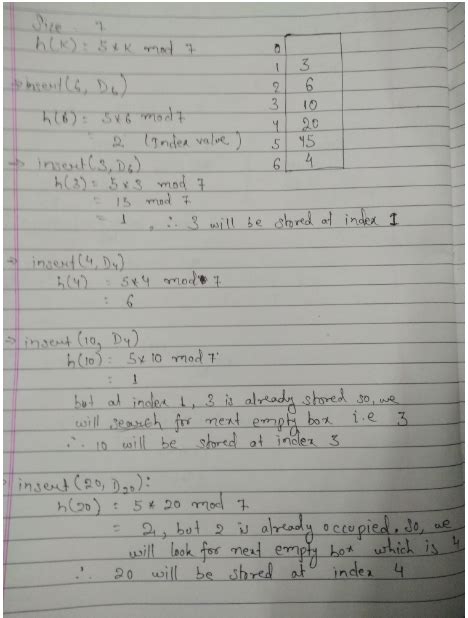 Size . 7
h(K) : 5 * K mod 7
→ insert(6, D6)
h(6) : 5*6 mod 7
= 2 (Index value)
0
1 3
2 6
3 10
4 20
5 45
6 4
→ insert(3, D6)
h(3) : 5 * 3 mod 7
= 15 mod 7
= 1 , ∴ 3 will be stored at index 1
→ insert(4, D4)
h(4) : 5*4 mod 7
: 6
→ insert (10, D4)
h(10) : 5* 10 mod 7
= 1
but at index 1, 3 is already stored so, we
will search for next empty box i.e 3
∴ 10 will be stored at index 3
→ insert(20, D20):
h(20) : 5 * 20 mod 7
= 2, but 2 is already occupied. So, we
will look for next empty box which is 4
∴ 20 will be stored at index 4